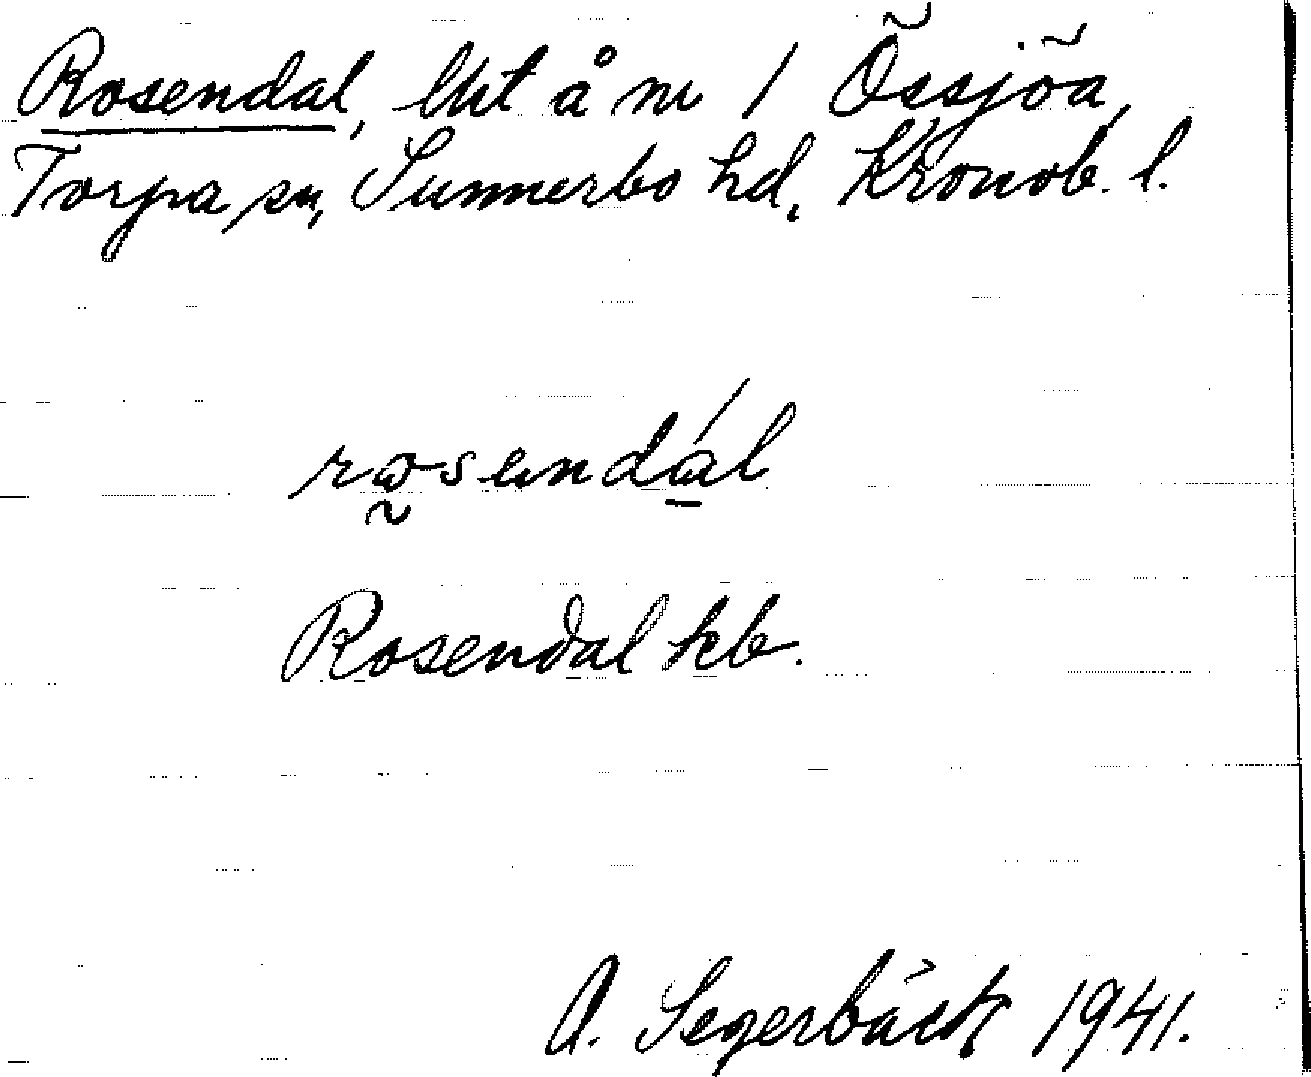 Rosendal, lht å nr 1 Össjöa,
Torpa sn, Sunnerbo hd, Kronob. l.
rosendal
Rosendal kb.
A. Segerbäck 1941.